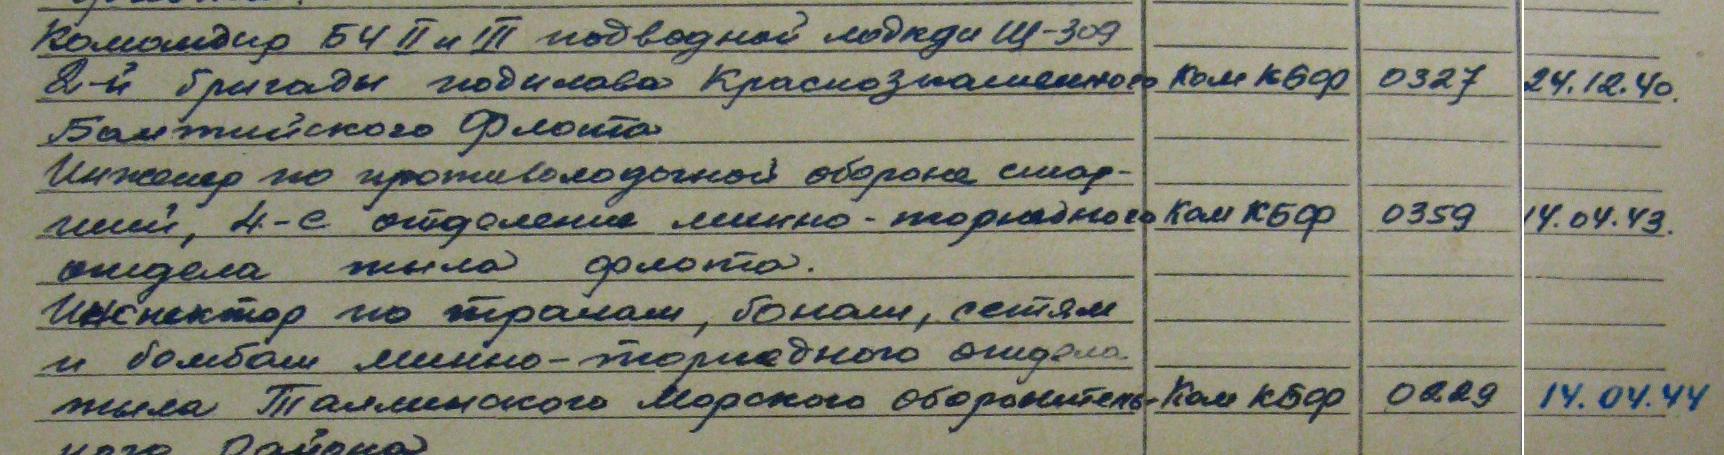 Командир БЧ II и III подводной лодки Щ-309
2-й бригады подплава Краснознаменного КомКБФ 0327 24.12.40.
Балтийского Флота
Инженер по противолодочной обороне стар-
ший, 4-е отделение минно-торпедного КомКБФ 0359 14.04.43.
отдела тыла флота.
Инспектор по тралам, бонам, сетям
и бомбам минно-торпедного отдела
тыла Таллинского Морского оборонитель- КомКБФ 0229 14.04.44
ного района